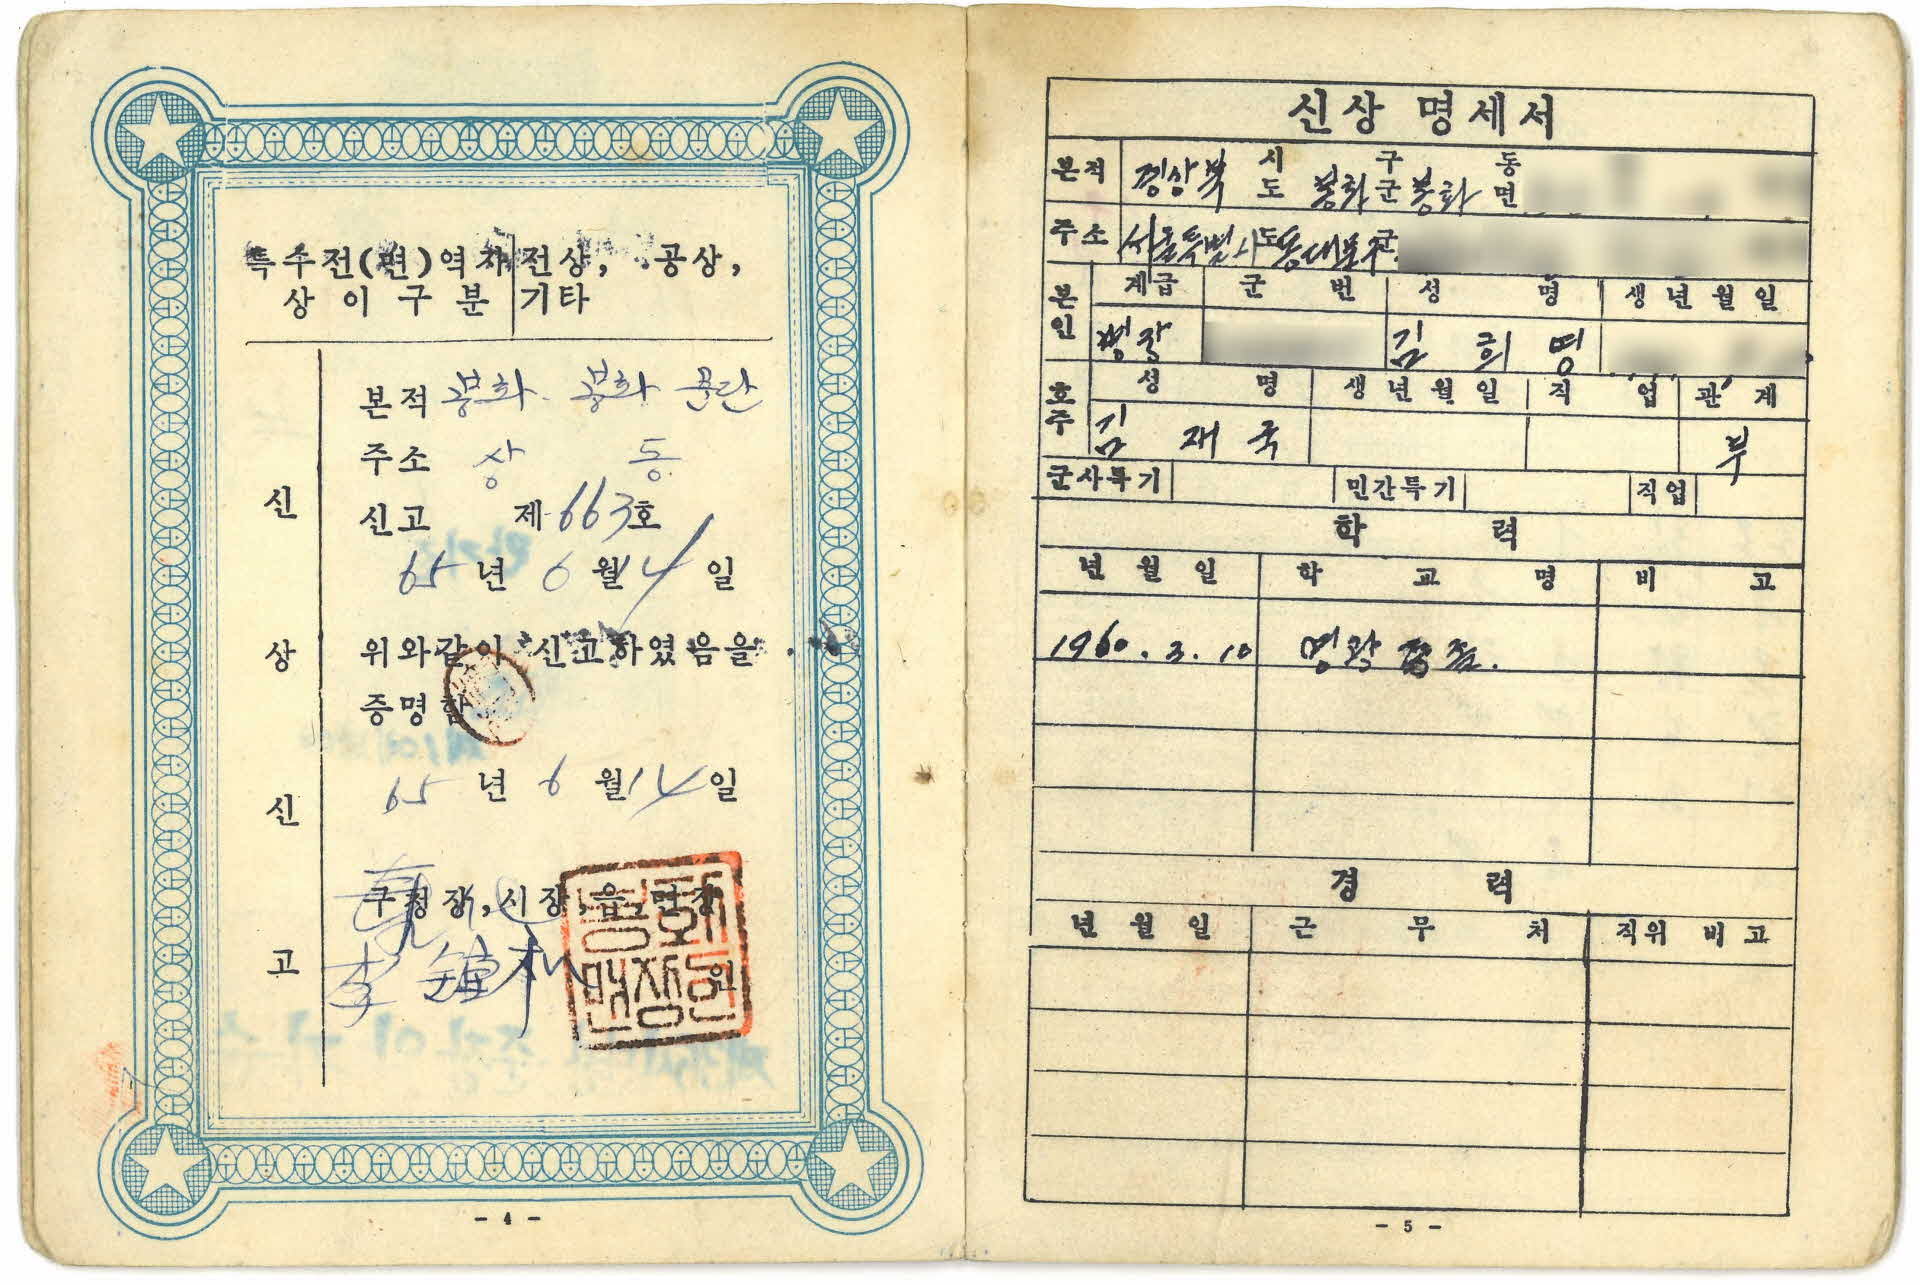 특수전(편)역자 전상, 공상,
상이구분 기타
신상신고
본적 봉화 봉화 문단
주소 상동
신고 제 663호
65년 6월 14일
위와같이 신고하였음을
증명함
65년 6월 14일
구청장, 시장, 읍, 면장
李鍾
봉화면장인
- 4 -
신상 명세서
본적 경상북 시도 봉화 구군 봉화 동면
주소 서울특별시도 동대문구군
본인 계급 군번 성명 생년월일
병장 김희명
호주 성명 생년월일 직업 관계
김재국 부
군사특기 민간특기 직업
학력
년월일 학교명 비고
1960. 3. 10
경력
년월일 근무처 직위 비고
- 5 -